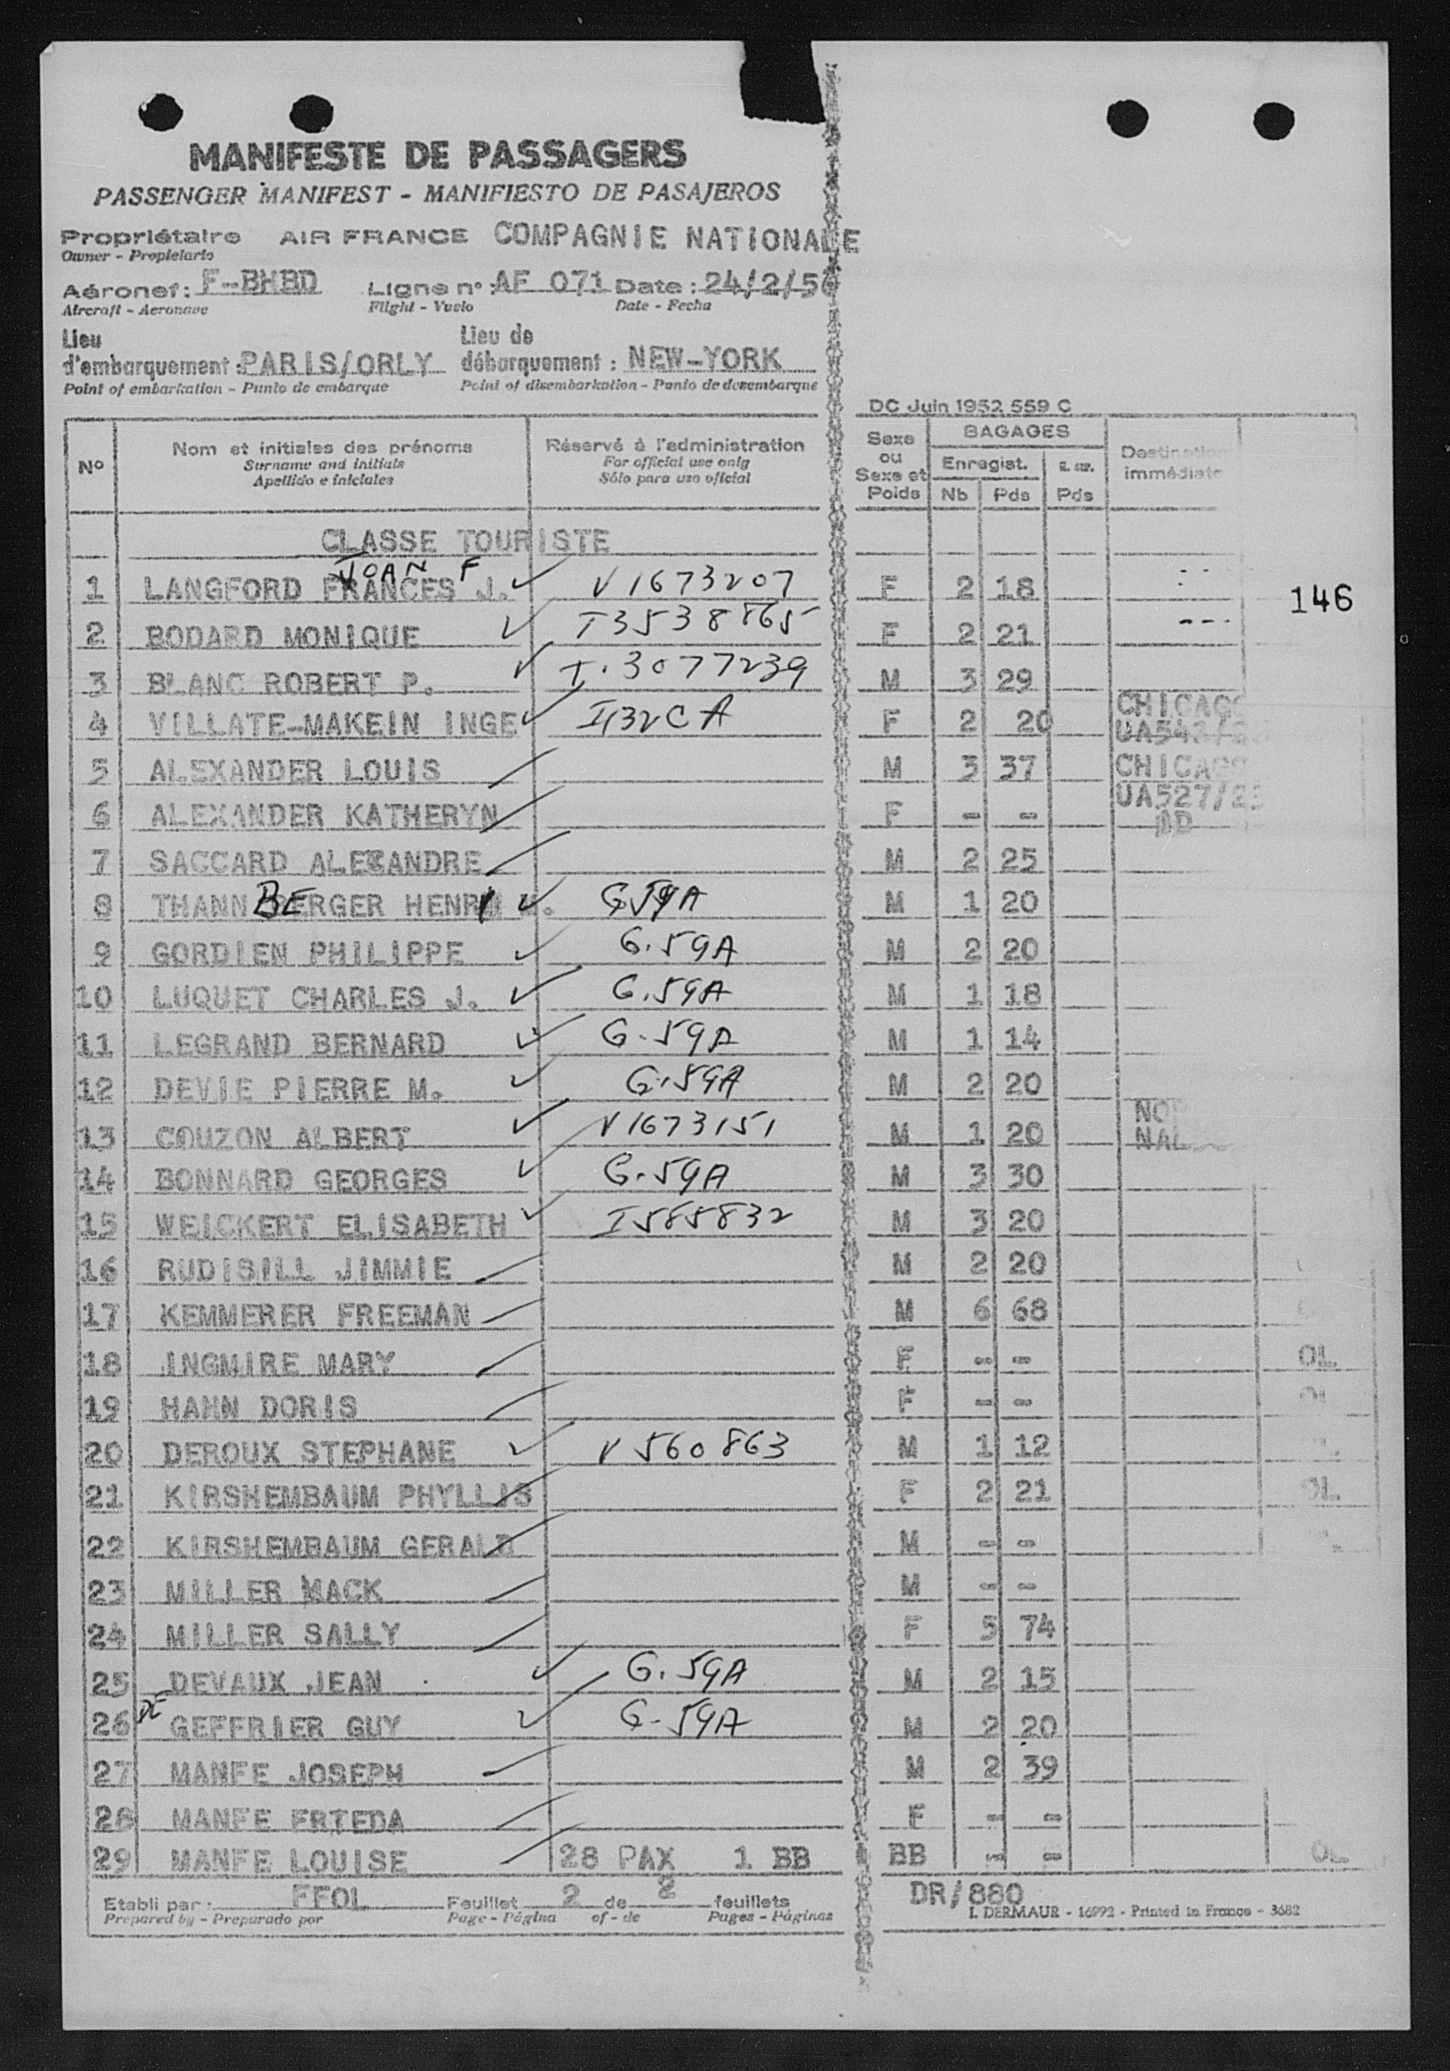 MANIFESTE DE PASSAGERS
PASSENGER MANIFEST - MANIFIESTO DE PASAJEROS
Propriétaire AIR FRANCE COMPAGNIE NATIONALE
Owner - Propietario
Aéronef: F-BHBD Ligne n° : AF 071 Date : 24/2/56
Aircraft - Aeronave Flight - Vuelo Date - Fecha
Lieu Lieu de
d'embarquement : PARIS/ORLY débarquement : NEW-YORK
Point of embarkation - Punto de embarque Point of disembarkation - Punto de desembarque
DC Juin 1952 559 C
N° Nom et initiales des prénoms Réservé à l'administration Sexe ou Sexe et Poids BAGAGES Destination immédiate
Surname and initials For official use only Enregist.
Apellido e iniciales Sólo para uso oficial Nb Pds Pds
CLASSE TOURISTE
JOAN F
1 LANGFORD FRANCES J. V1673207 F 2 18
146
2 BODARD MONIQUE I3538865 F 2 21 ---
3 BLANC ROBERT P. I.3077239 M 3 29
4 VILLATE-MAKEIN INGE I132CA F 2 20 CHICAGO UA542/
5 ALEXANDER LOUIS M 3 37 CHICAGO
6 ALEXANDER KATHERYN F - - UA527/25
7 SACCARD ALEXANDRE M 2 25
8 THANNBERGER HENRI M. G59A M 1 20
9 GORDIEN PHILIPPE G.59A M 2 20
10 LUQUET CHARLES J. G.59A M 1 18
11 LEGRAND BERNARD G-59A M 1 14
12 DEVIE PIERRE M. G.59A M 2 20
13 COUZON ALBERT V1673151 M 1 20
14 BONNARD GEORGES G.59A M 3 30
15 WEICKERT ELISABETH I585832 M 3 20
16 RUDISILL JIMMIE M 2 20
17 KEMMERER FREEMAN M 6 68
18 INGMIRE MARY F - - OL
19 HAHN DORIS F - - OL
20 DEROUX STEPHANE V560863 M 1 12
21 KIRSHEMBAUM PHYLLIS F 2 21 OL
22 KIRSHEMBAUM GERALD M - -
23 MILLER MACK M - -
24 MILLER SALLY F 5 74
25 DEVAUX JEAN G.59A M 2 15
26 DE GEFFRIER GUY G-59A M 2 20
27 MANFE JOSEPH M 2 39
28 MANFE FRIEDA F - -
29 MANFE LOUISE 28 PAX 1 BB BB - - OL
Etabli par : FFOL Feuillet 2 de 2 feuillets DR/880
Prepared by - Preparado por Page - Página of - de Pages - Páginas I. DERMAUR - 16992 - Printed in France - 3682